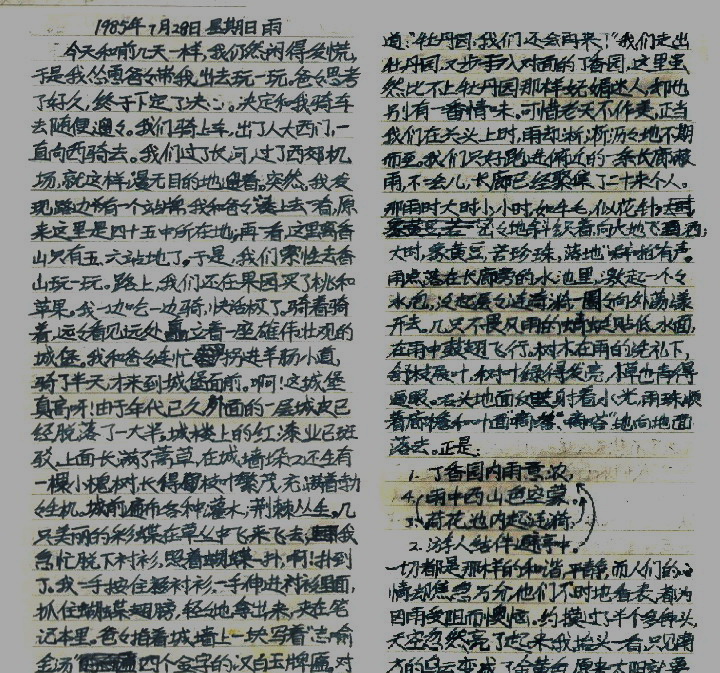 1985年7月28日 星期日 雨
今天和前几天一样,我仍然闲得发慌,
于是我怂恿爸爸带我出去玩一玩。爸爸思考
了好久,终于下定了决心。决定和我骑车
去随便遛遛。我们骑上车,出了人大西门,一
直向西骑去。我们过了长河,过了西郊机
场,就这样漫无目的地遛着。突然,我发
现路边有一个站牌,我和爸爸凑上去一看,原
来这里是四十五中所在地,再一看,这里离香
山只有五、六站地了。于是,我们索性去香
山玩一玩。路上,我们还在果园买了桃和
苹果。我一边吃一边骑,快活极了。骑着骑
着,远远看见远处矗立着一座雄伟壮观的
城堡。我和爸爸连忙拐进羊肠小道,
骑了半天,才来到城堡面前。啊!这城堡
真高呀!由于年代已久,外面的一层城皮已
经脱落了一大半。城楼上的红漆业已斑
驳,上面长满了蒿草,在城墙垛口还生有
一棵小槐树长得枝叶繁茂,充满着勃
勃生机。城前遍布各种灌木,荆棘丛生。几
只美丽的彩蝶在草丛中飞来飞去,我
急忙脱下衬衫,照着蝴蝶一扑,啊!扑到
了。我一手按住衬衫,一手伸进衬衫里面,
抓住蝴蝶翅膀,轻轻地拿出来,夹在笔
记本里。爸爸指着城墙上一块写着“
金汤”四个金字的汉白玉牌匾。对
道:“牡丹园,我们还会再来!”我们走出
牡丹园,又步入对面的丁香园,这里虽
然比不上牡丹园那样妩媚迷人,却也
别有一番情味。可惜老天不作美,正当
我们在兴头上时,雨却淅淅沥沥地不期
而至。我们只好跑进附近的一条长廊避
雨,不一会儿,长廊已经聚集了二十来个人。
那雨时大时小,小时,如牛毛,似花针,
密密地斜织着向大地飞洒;
大时,象黄豆,若珍珠,落地辟啪有声。
雨点落在长廊旁的水池里,激起一个个
水泡,圈向外荡漾
开去。几只不畏风雨的蜻蜓贴低水面,
在雨中鼓翅飞行。树木在雨的洗礼下,
舒枝展叶,树叶绿得发亮,
石头地面反射着小光,雨珠顺
着廊檐和叶面“嘀嗒”“嘀嗒”地向地面
落去。正是:
1. 丁香园内雨意浓,
4. 雨中西山色空蒙。
3. 荷花池内起涟漪,
2. 游人结伴避亭中。
一切都是那样的和谐,平静,而人们的心
情却焦急万分,他们不时地看表,都为
因雨受阻而懊恼。约摸过了半个多钟头,
天空忽然亮了起来,我抬头一看,只见南
方的乌云变成了金黄色,原来太阳就要